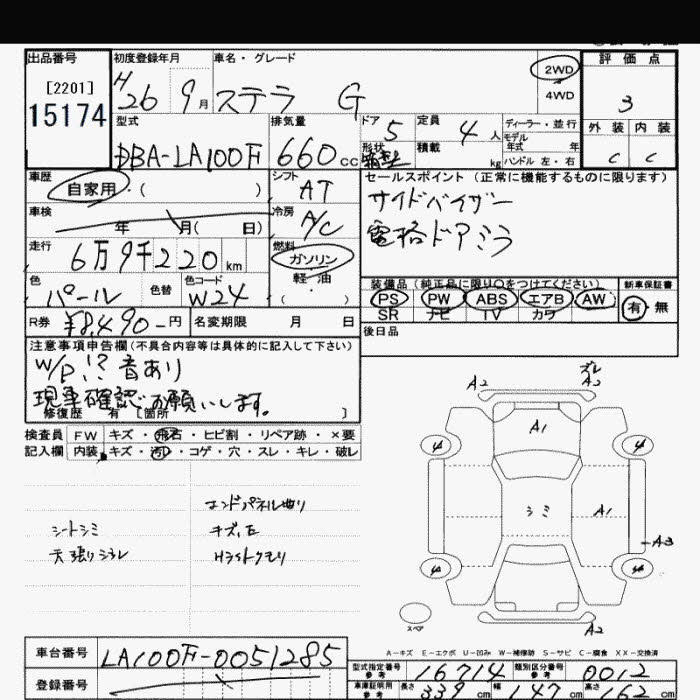 出品番号 初度登録年月 車名・グレード 2WD 評価点
[2201] H 26 9月 ステラ G 4WD 3
15174 型式 排気量 ドア 5 定員 4人 ディーラー・並行 外装 内装
DBA-LA100F 660cc 形状 箱型 積載 kg モデル年式 年 ハンドル 左・右 C C
車歴 シフト セールスポイント (正常に機能するものに限ります)
自家用・( ) AT サイドバイザー
車検 冷房 電格ドアミラ
年 月( 日) A/C
走行 燃料
6万9千220km ガソリン
色 色替 色コード 軽・油 装備品 (純正品に限り○をつけてください) 新車保証書
パール W24 ( ) PS PW ABS エアB AW 有・無
SR ナビ TV カワ
R券 ¥8,490-円 名変期限 月 日 後日品
注意事項申告欄(不具合内容等は具体的に記入して下さい)
W/P!? 音あり
現車確認お願いします。
修復歴 有 [箇所 ]
検査員 FW キズ・飛石・ヒビ割・リペア跡・×要
記入欄 内装 キズ・汚れ・コゲ・穴・スレ・キレ・破レ
A2 ズレ A2
A1
4 4
エンドパネル曲り
シートシミ キズ、E
天張りシミ、スレ Hライトクモリ
シミ A1
A3
4 4
スペア
A2
A-キズ E-エクボ U-凹み W-補修跡 S-サビ C-腐食 XX-交換済
車台番号 LA100F-0051285
登録番号
型式指定番号 参考 16714 類別区分番号 参考 0012
車庫証明用 参考 長さ 339cm 幅 147cm 高さ 162cm